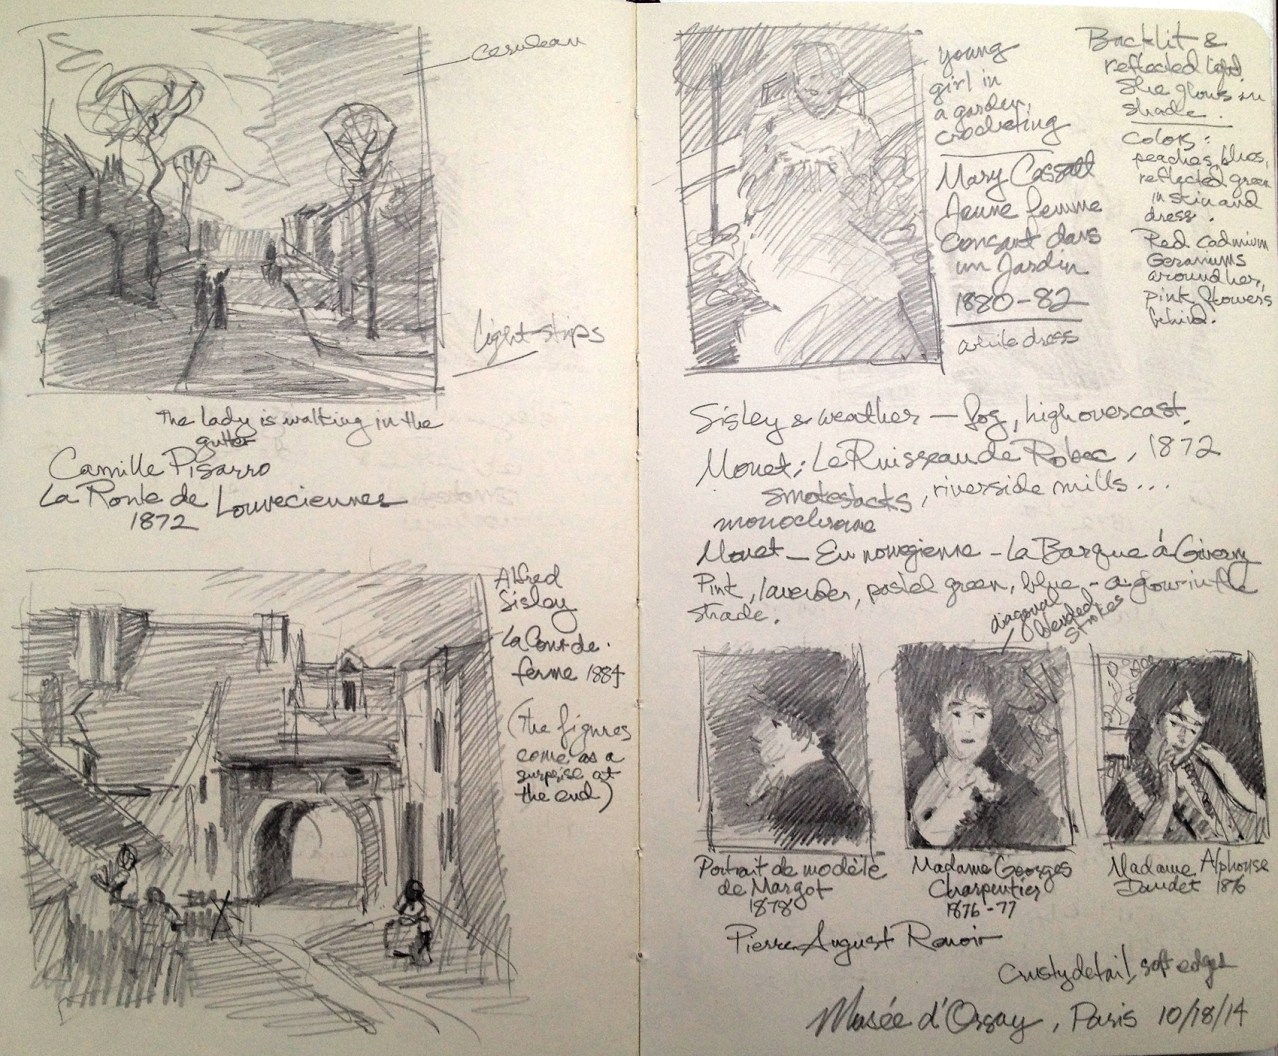 cerulean
light strips
The lady is walking in the
gutter
Camille Pisarro
La Route de Louveciennes
1872
Alfred
Sisley
La Cour de
ferme 1884
(The figures
come as a
surprise at
the end)
young
girl in
a garden,
crocheting
Mary Cassatt
Jeune femme
cousant dans
un Jardin
1880-82
white dress
Backlit &
reflected light.
She glows in
shade.
Colors:
peaches, blues,
reflected green
in skin and
dress.
Red cadmium
Geraniums
around her,
pink flowers
behind.
Sisley & weather — fog, high overcast.
Monet: Le Ruisseau de Robec, 1872
smokestacks, riverside mills...
monochrome
Monet — En norvegienne - La Barque à Giverny
Pink, lavender, pastel green, blue - a glow in the
shade.
diagonal
blended
strokes
Portrait de modèle
de Margot
1878
Madame Georges
Charpentier
1876-77
Madame Alphonse
Daudet 1876
Pierre August Renoir
Crusty detail, soft edges
Musée d'Orsay, Paris 10/18/14